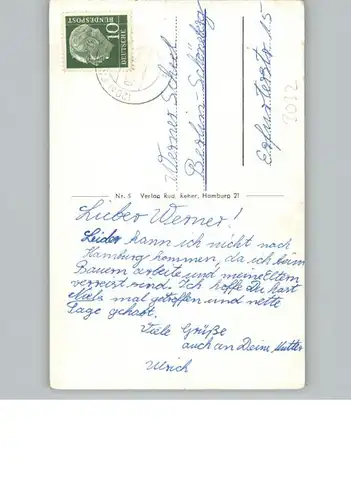 10
DEUTSCHE
BUNDESPOST
Werner Scheel
Berlin-Schöneberg
Erfurterstr. 15
2032
Nr. 5 Verlag Rud. Reher, Hamburg 21
Lieber Werner!
Leider kann ich nicht nach
Hamburg kommen, da ich beim
Bauern arbeite und meine Eltern
verreist sind. Ich hoffe Du hast
Niels mal getroffen und nette
Tage gehabt.
Viele Grüße
auch an Deine Mutter
Ulrich